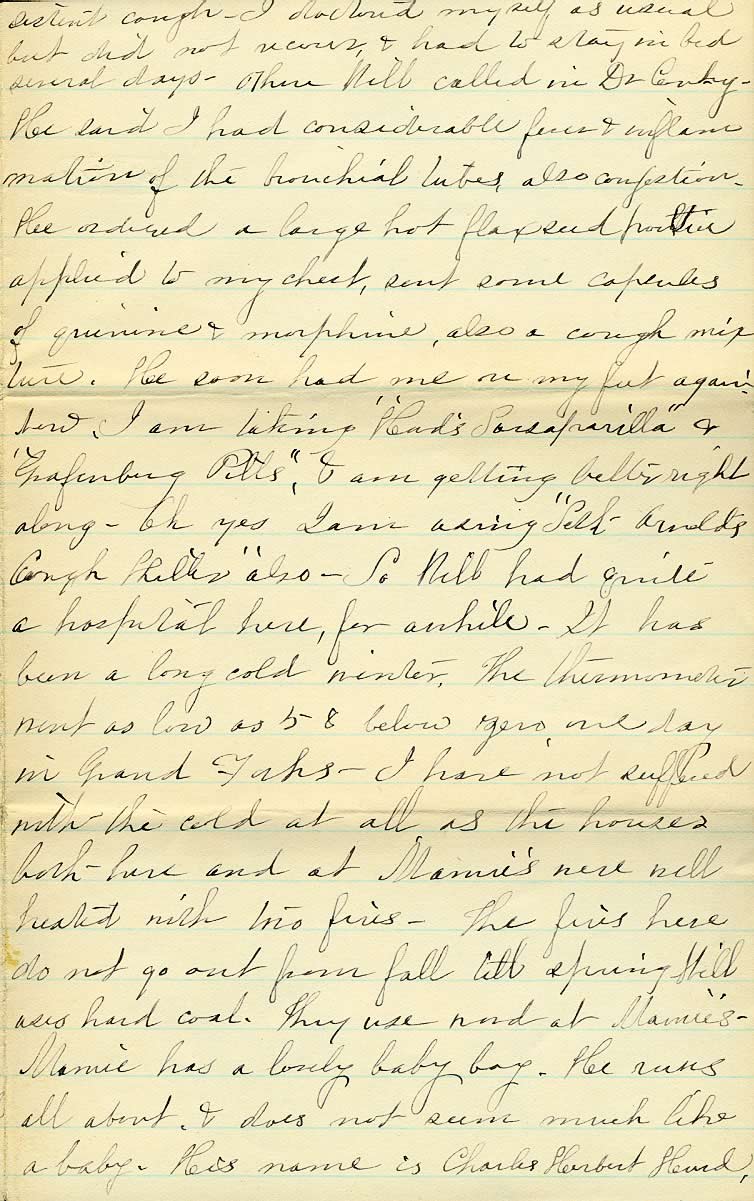 sistent cough - I doctored myself as usual
but did not recover, & had to stay in bed
several days - Then Will called in Dr
He said I had considerable fever & inflam
mation of the bronchial tubes, also congestion.
He ordered a large hot flaxseed poultice
applied to my chest, sent some capsules
of quinine & morphine, also a cough mix
ture. He soon had me on my feet again -
now, I am taking "Hood's Sarsaparilla" &
"Grafenberg Pills", & am getting better right
along - Oh yes I am using "Seth Arnolds
Cough Killer" also - So Will had quite
a hospital here, for awhile - It has
been a long cold winter. The thermometer
went as low as 58 below zero one day
in Grand Forks - I have not suffered
with the cold at all as the houses
both here and at Mamie's were well
heated with two fires - The fires here
do not go out from fall till spring Will
uses hard coal. They use wood at Mamie's -
Mamie has a lovely baby boy. He runs
all about, & does not seem much like
a baby. His name is Charles Herbert Heard,